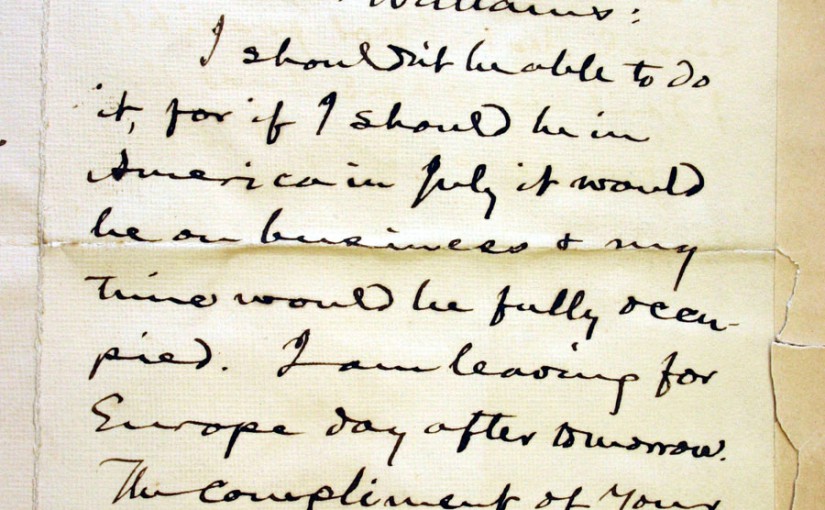 Williams:
I shouldn't be able to do
it, for if I should be in
America in July it would
be on business & my
time would be fully occu-
pied. I am leaving for
Europe day after tomorrow.
The compliment of your